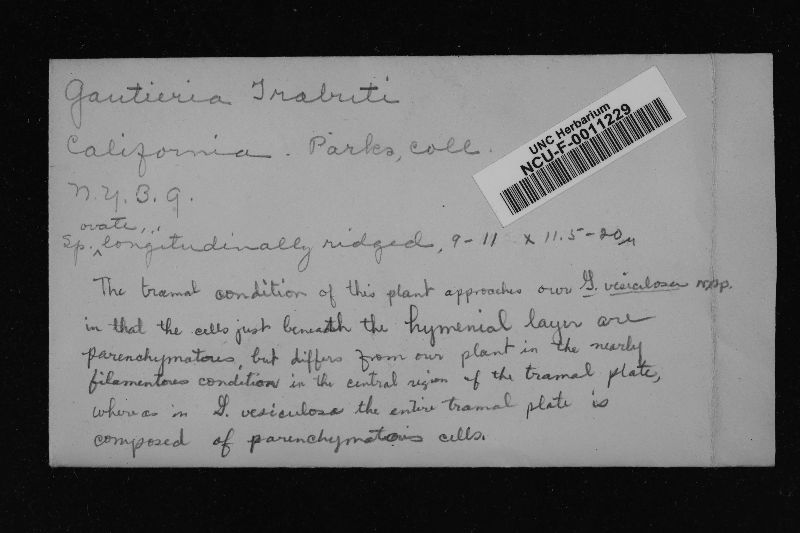 Gautieria Trabuti
California. Parks, coll.
UNC Herbarium
NCU-F-0011229
N.Y.B.G.
ovate,
Sp. ^ longitudinally ridged, 9-11 x 11.5-20µ
The tramal condition of this plant approaches our G. vesiculosa n. sp.
in that the cells just beneath the hymenial layer are
parenchymatous, but differs from our plant in the nearly
filamentous condition in the central region of the tramal plate,
whereas in G. vesiculosa the entire tramal plate is
composed of parenchymatous cells.